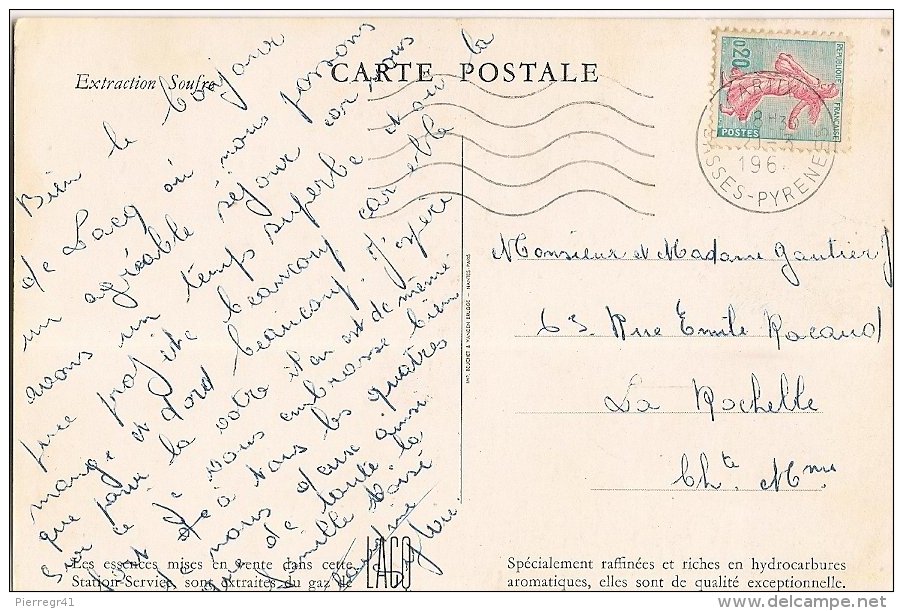 Extraction Soufre
CARTE POSTALE
0,20
REPUBLIQUE FRANCAISE
POSTES
ARTIX
18H
196
BSSES-PYRENEES
Bien le bonjour
de Lacq où nous passons
un agréable séjour car nous
avons un temps superbe dont la
puce profite beaucoup car elle
mange et dort beaucoup. J'espère
que pour la votre il en est de même.
Sur ce je vous embrasse bien
fort à tous les quatres
de nous deux ainsi
que de toute la
famille
Monsieur et Madame Gautier J
63 Rue Emile Racaud
La Rochelle
Ch.te Mme
IMP. BEUCHET & VANDEN BRUGGE - NANTES-PARIS
Les essences mises en vente dans cette
Station-Service, sont extraites du gaz de
LACQ
Spécialement raffinées et riches en hydrocarbures
aromatiques, elles sont de qualité exceptionnelle.
Pierregr41
delcampe.net